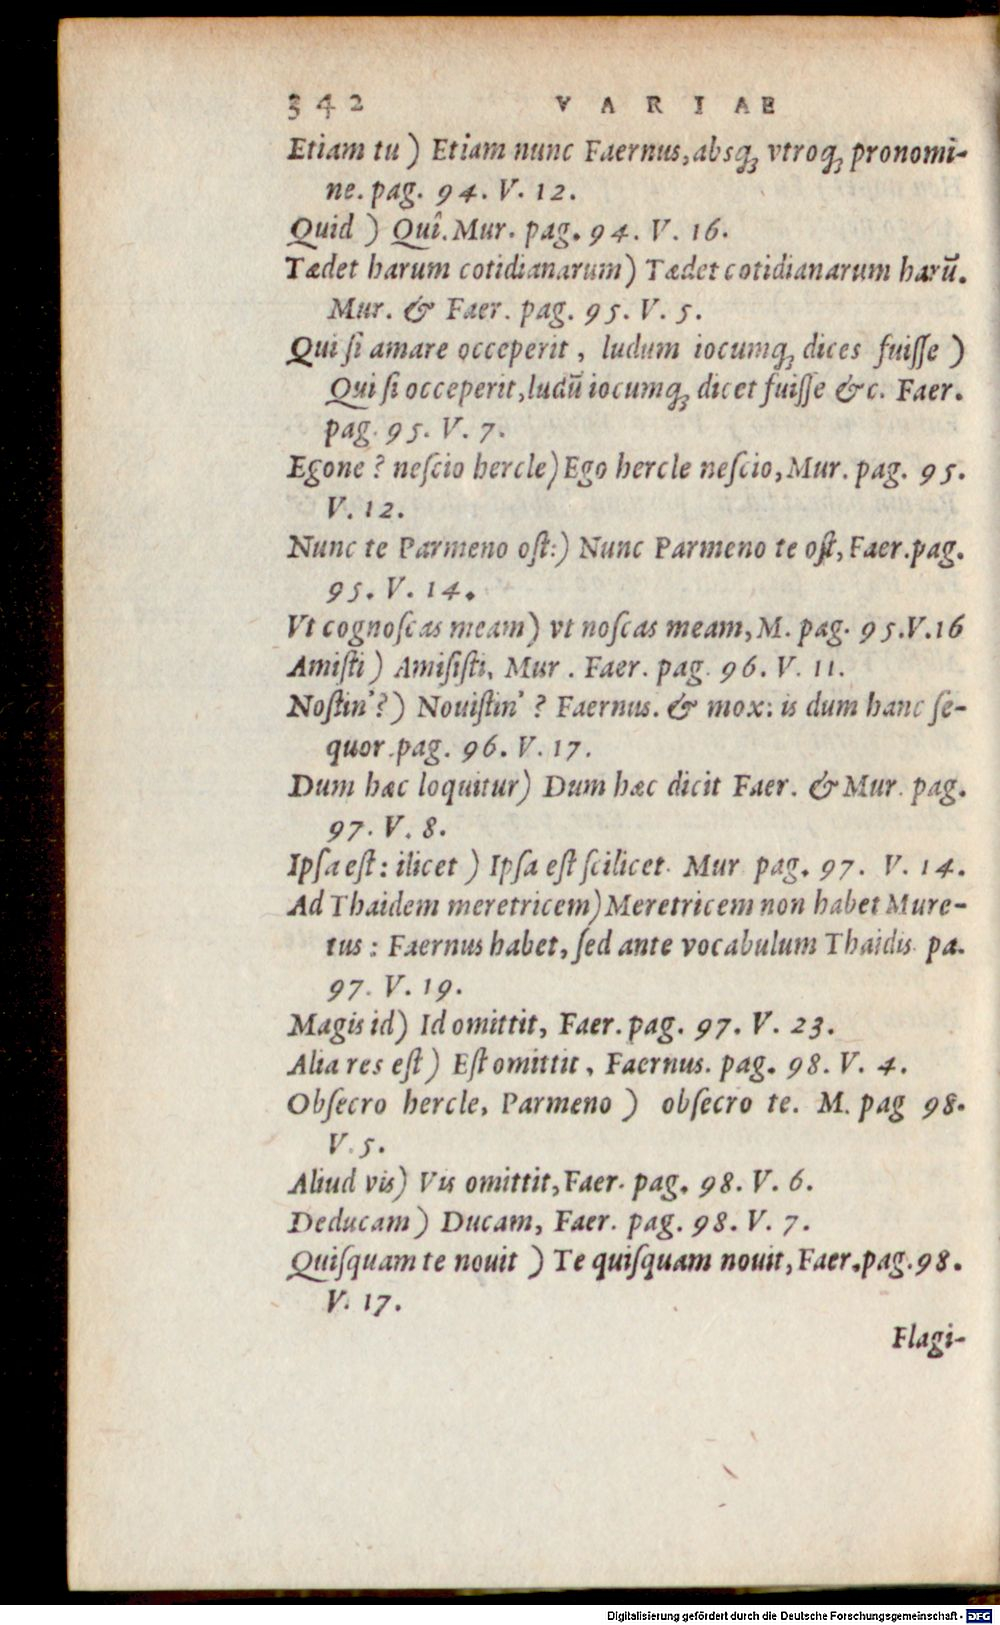 342 VARIAE
Etiam tu ) Etiam nunc Faernus, absq́; vtroq́; pronomi-
ne. pag. 94. V. 12.
Quid ) Quî. Mur. pag. 94. V. 16.
Tædet harum cotidianarum) Tædet cotidianarum harū.
Mur. & Faer. pag. 95. V. 5.
Qui ſi amare occeperit, ludum iocumq́; dices fuiſſe )
Qui ſi occeperit, ludū iocumq́; dicet fuiſſe &c. Faer.
pag. 95. V. 7.
Egone ? neſcio hercle) Ego hercle neſcio, Mur. pag. 95.
V. 12.
Nunc te Parmeno oſt:) Nunc Parmeno te oſt, Faer. pag.
95. V. 14.
Vt cognoſcas meam) vt noſcas meam, M. pag. 95. V. 16
Amiſti ) Amiſiſti, Mur. Faer. pag. 96. V. 11.
Noſtin'?) Nouiſtin' ? Faernus. & mox: is dum hanc ſe-
quor. pag. 96. V. 17.
Dum hæc loquitur) Dum hæc dicit Faer. & Mur. pag.
97. V. 8.
Ipſa eſt: ilicet ) Ipſa eſt ſcilicet. Mur pag. 97. V. 14.
Ad Thaidem meretricem) Meretricem non habet Mure-
tus : Faernus habet, ſed ante vocabulum Thaidis. pa.
97. V. 19.
Magis id) Id omittit, Faer. pag. 97. V. 23.
Alia res eſt) Eſt omittit, Faernus. pag. 98. V. 4.
Obſecro hercle, Parmeno ) obſecro te. M. pag 98.
V. 5.
Aliud vis) Vis omittit, Faer. pag. 98. V. 6.
Deducam ) Ducam, Faer. pag. 98. V. 7.
Quiſquam te nouit ) Te quiſquam nouit, Faer. pag. 98.
V. 17.
Flagi-
Digitalisierung gefördert durch die Deutsche Forschungsgemeinschaft - DFG